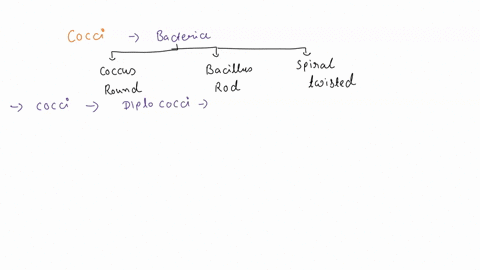 Cocci → Bacteria
Coccus Bacillus Spiral
Round Rod twisted
→ cocci → Diplo cocci →